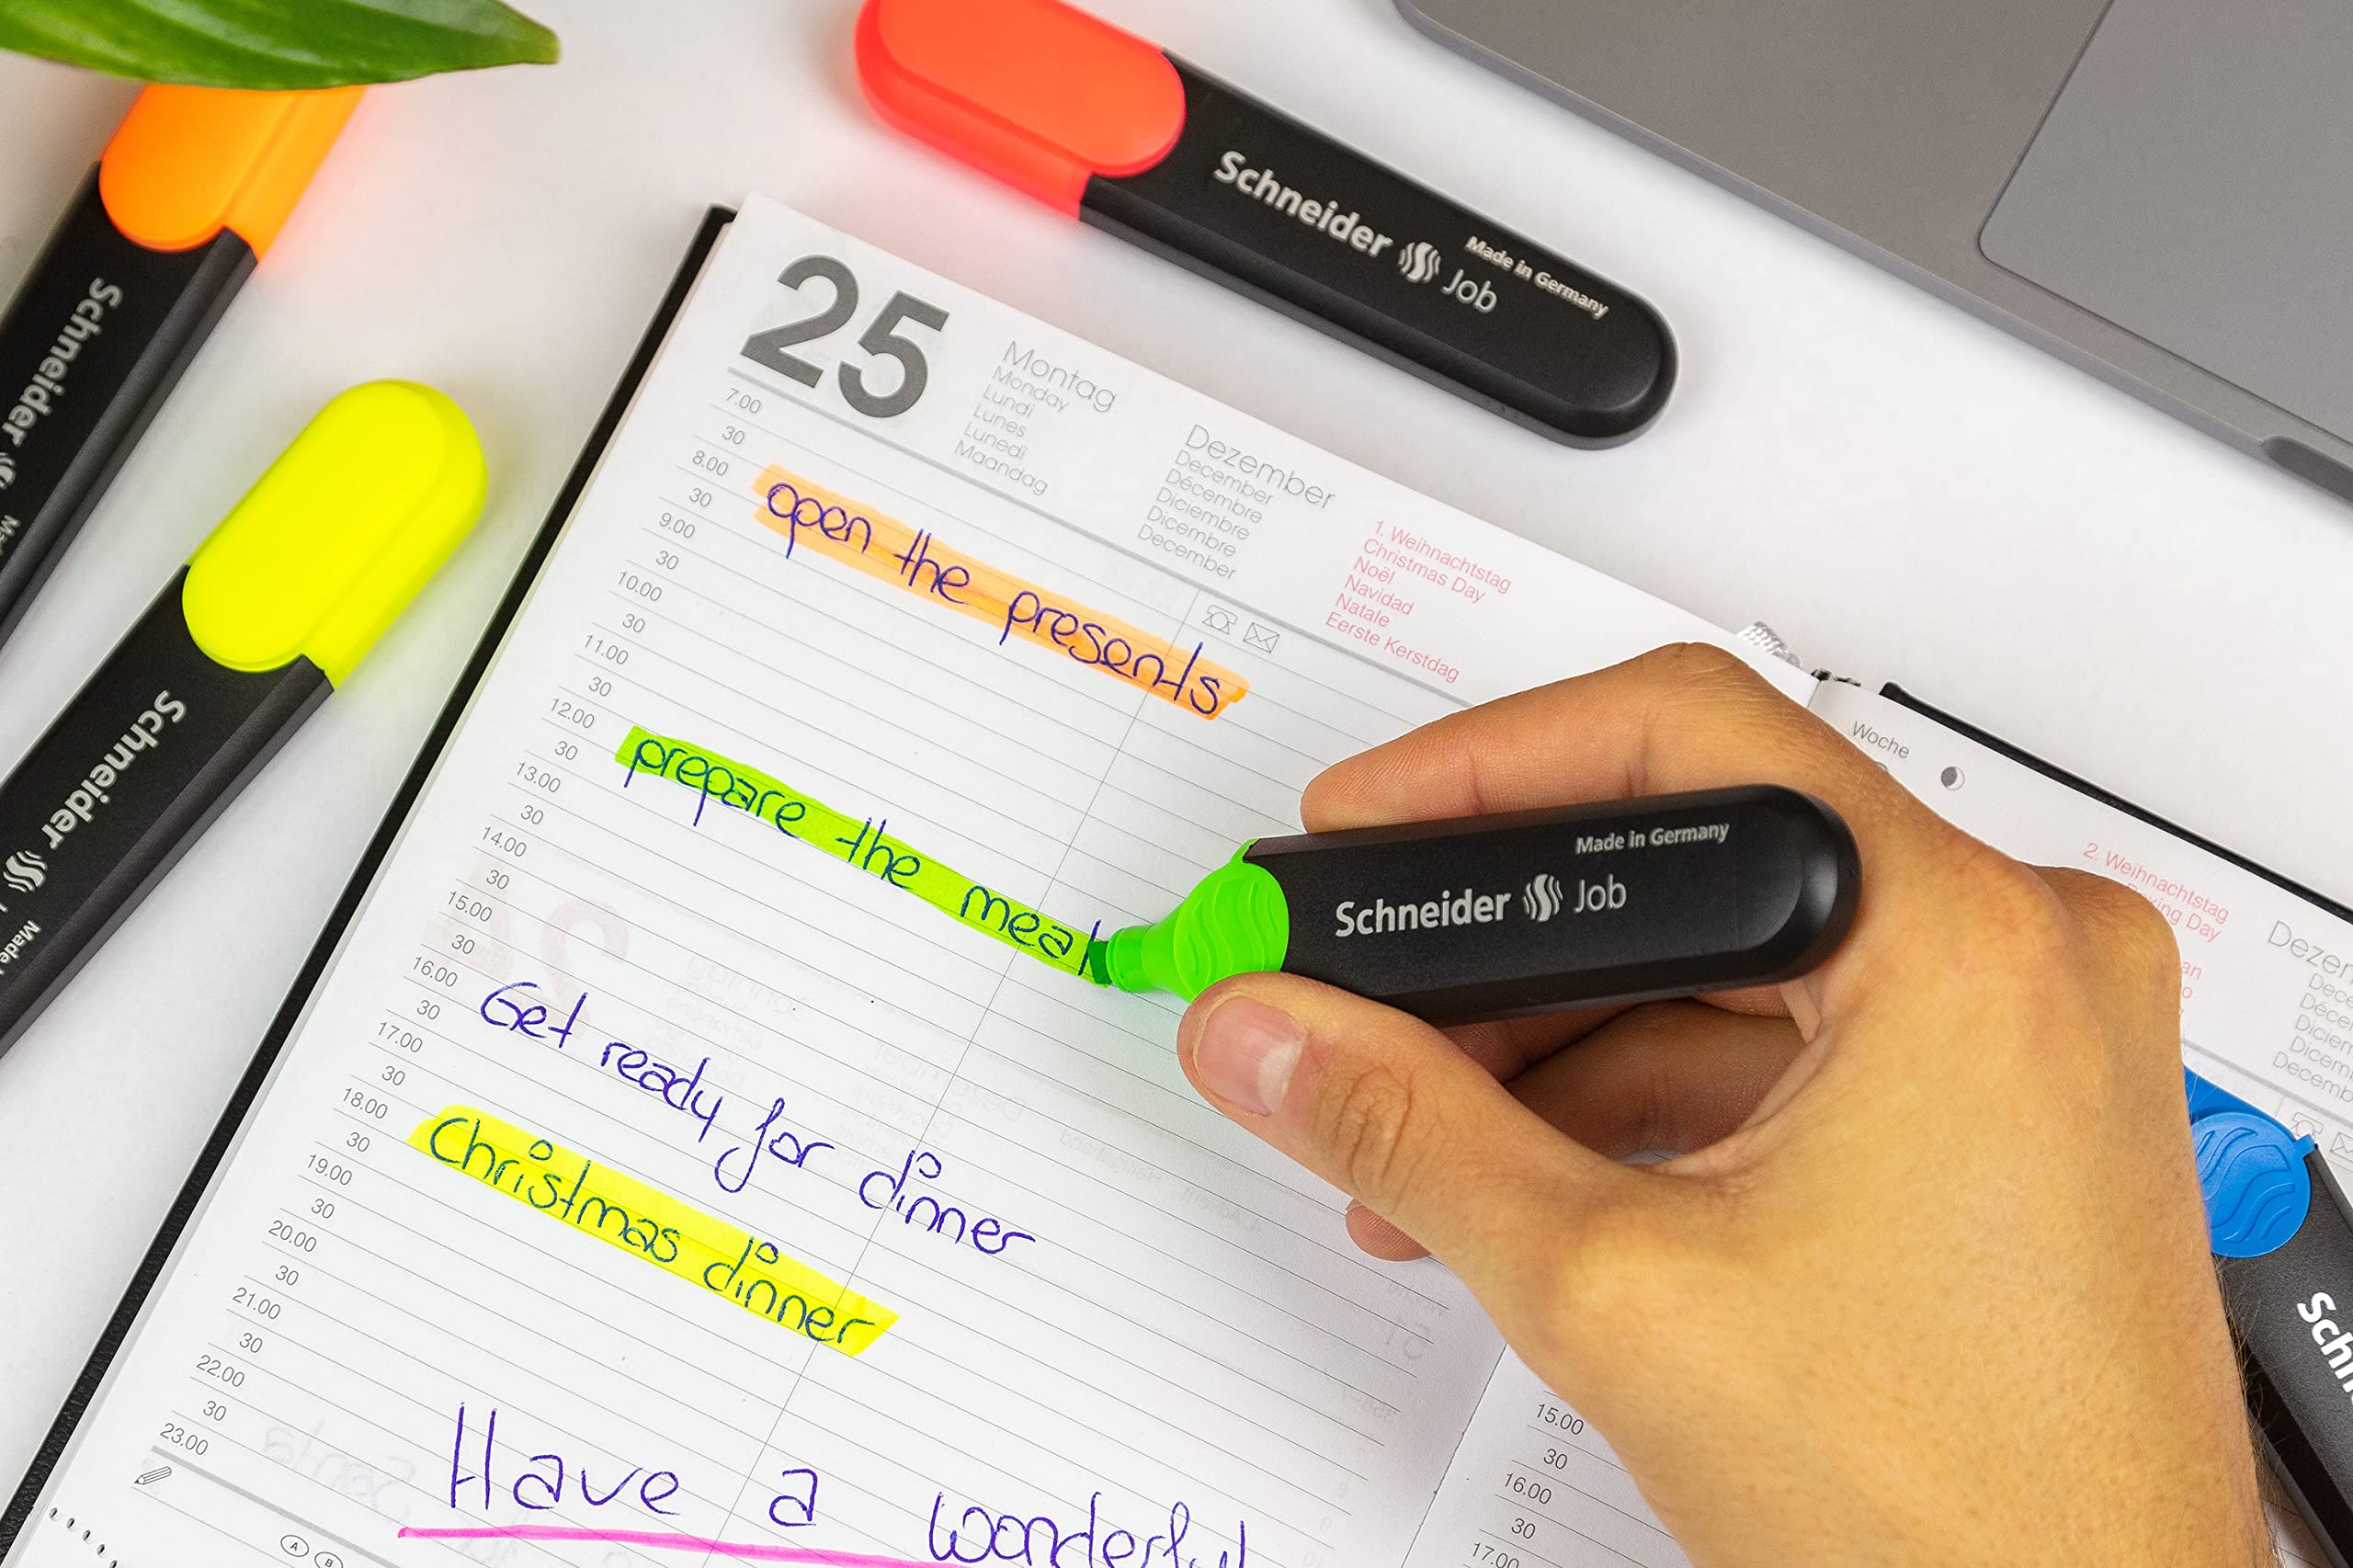 Schneider Job
Made in Germany
Schneider
Schneider
Made
25
Montag
Monday
Lundi
Lunes
Lunedì
Maandag
Dezember
December
Décembre
Diciembre
Dicembre
December
1. Weihnachtstag
Christmas Day
Noël
Navidad
Natale
Eerste Kerstdag
7.00
30
8.00
30
9.00
30
10.00
30
11.00
30
12.00
30
13.00
30
14.00
30
15.00
30
16.00
30
17.00
30
18.00
30
19.00
30
20.00
30
21.00
30
22.00
30
23.00
open the presents
prepare the meat
Get ready for dinner
Christmas dinner
Have a wonderful
A B
Made in Germany
Schneider Job
Woche
2. Weihnachtstag
Day
15.00
30
16.00
30
17.00